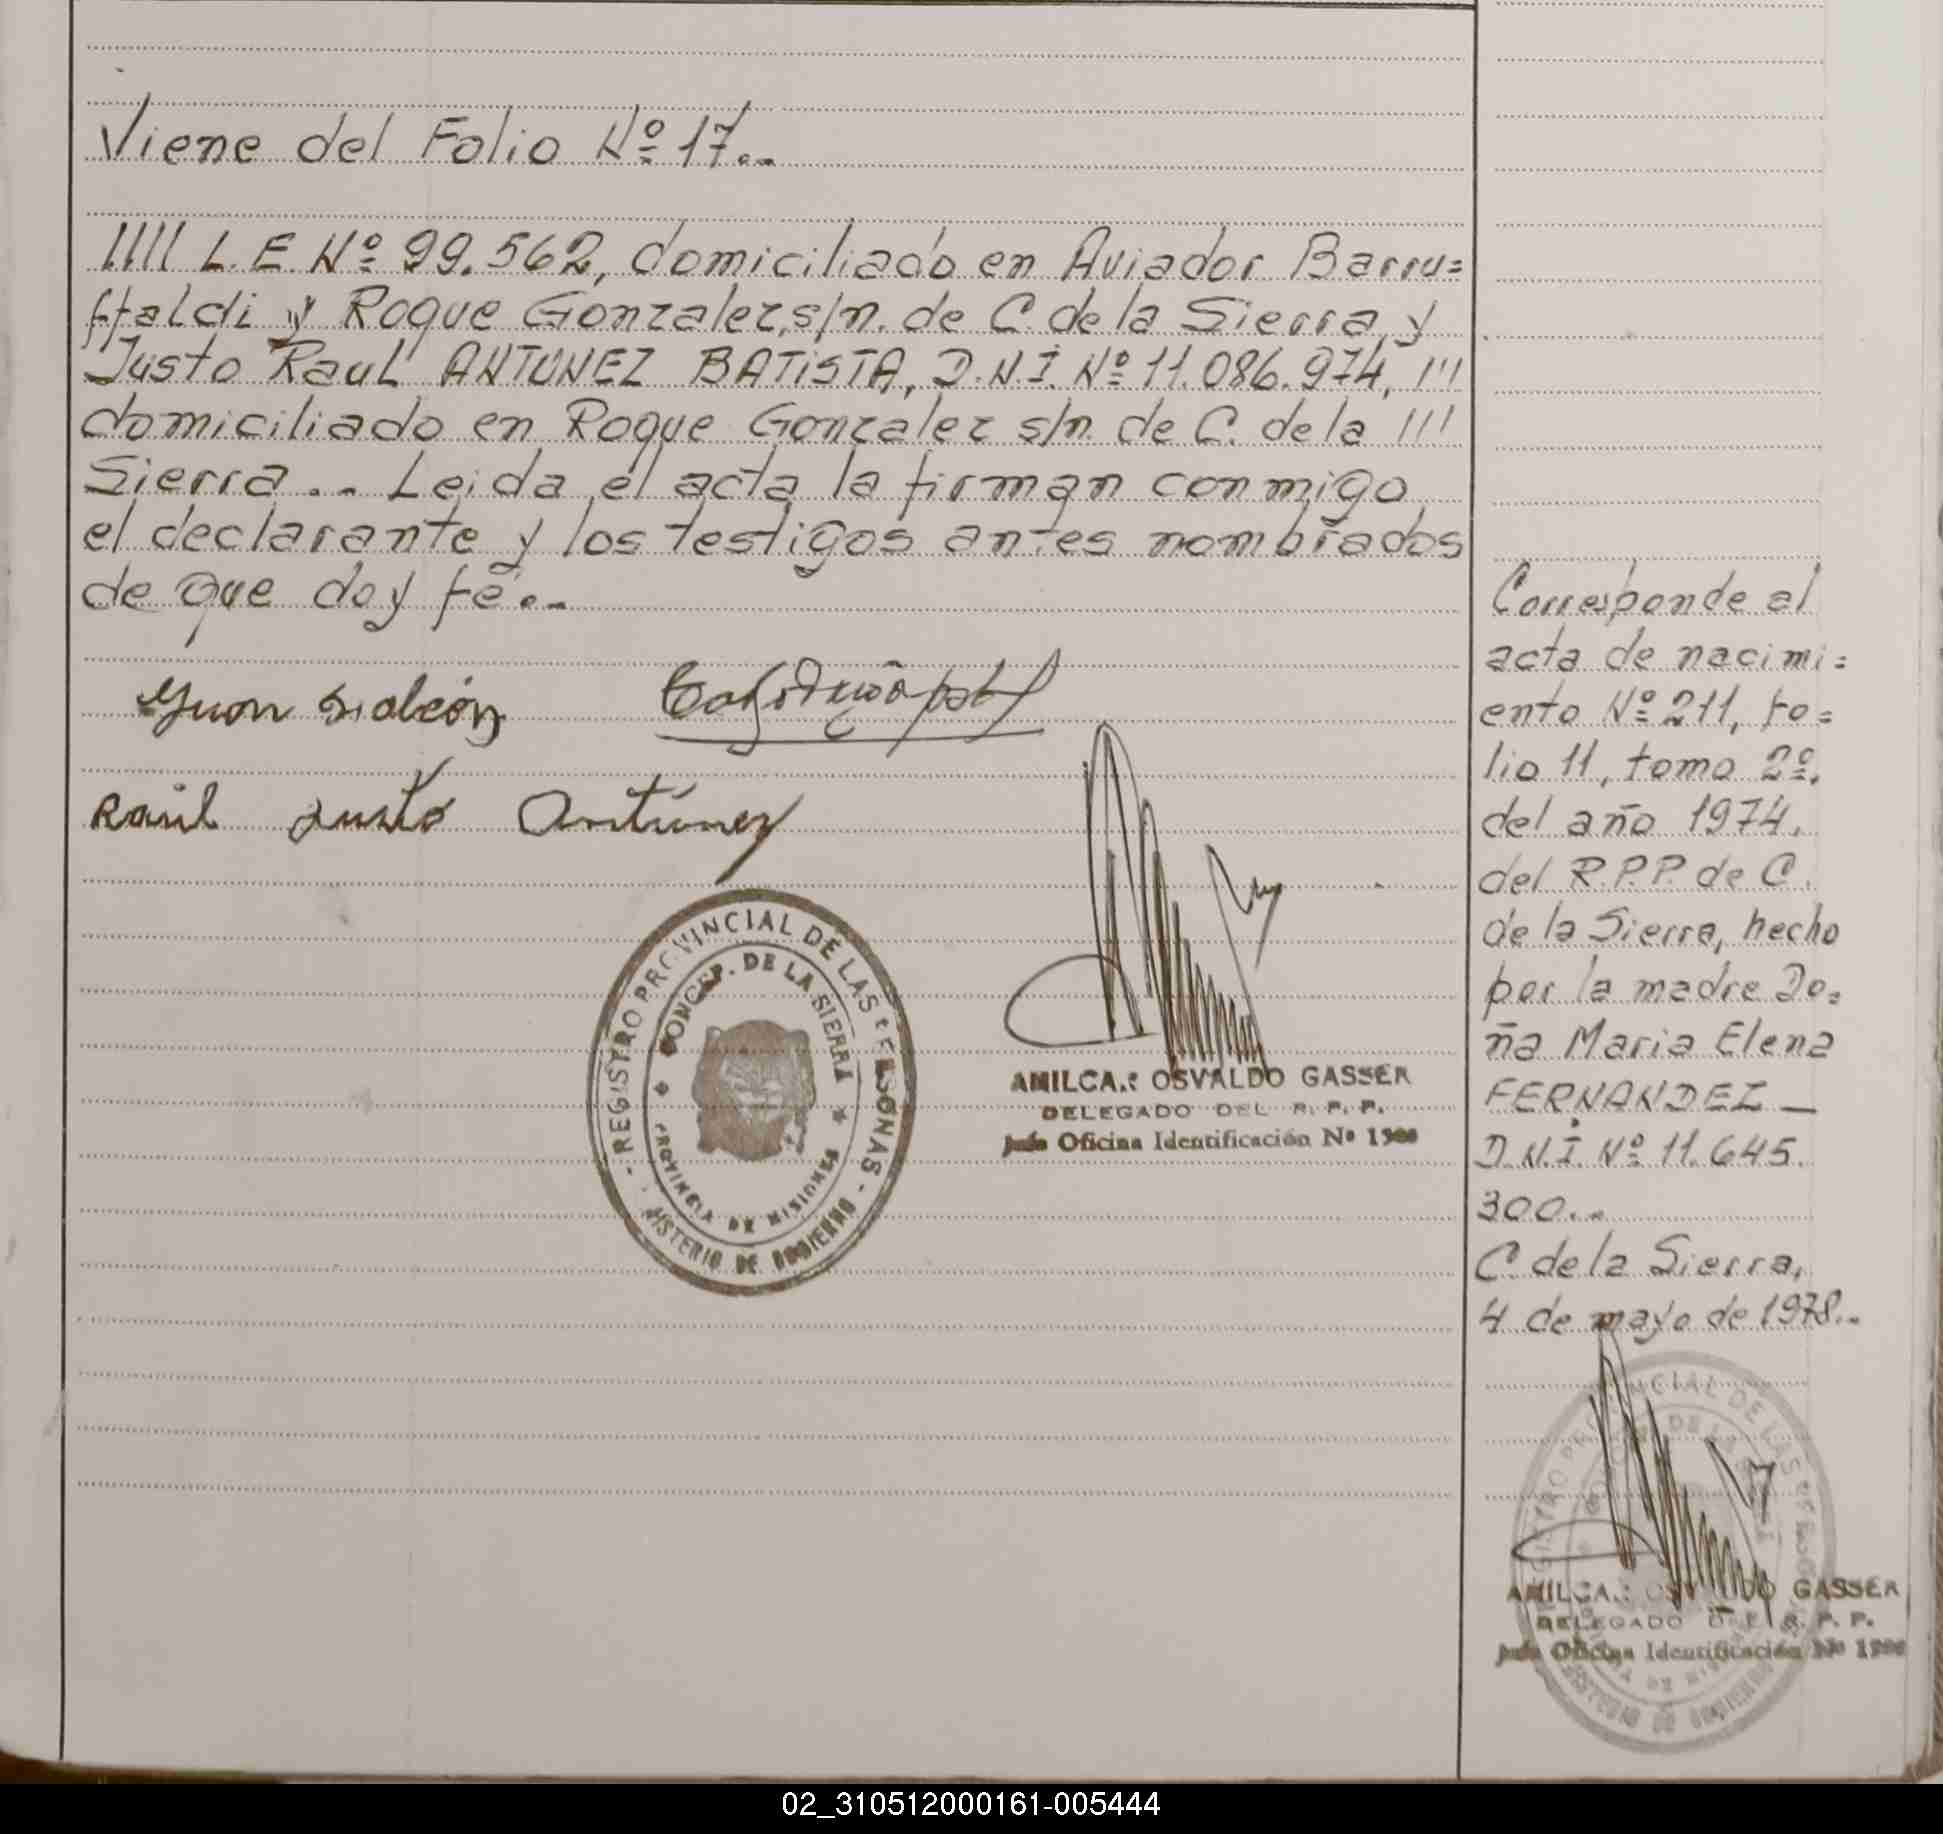 Viene del Folio Nº 17..
//// L.E. Nº 99.562, domiciliado en Aviador Barru=
ffaldi y Roque Gonzalez, s/n. de C. de la Sierra y
Justo Raul ANTUNEZ BATISTA, D.N.I. Nº 11.086.974, ///
domiciliado en Roque Gonzalez s/n. de C. de la ///
Sierra.._ Leida el acta la firman conmigo
el declarante y los testigos antes nombrados
de que doy fé._
Raúl Justo Antúnez
REGISTRO PROVINCIAL DE LAS PERSONAS
CONCEP. DE LA SIERRA
PROVINCIA DE MISIONES
NISTERIO DE GOBIERNO
AMILCA.: OSVALDO GASSER
DELEGADO DEL R. P. P.
Oficina Identificación Nº
Corresponde al
acta de nacimi=
ento Nº 211, fo=
lio 11, tomo 2º,
del año 1974,
del R.P.P. de C.
de la Sierra, hecho
por la madre Do=
ña Maria Elena
FERNANDEZ _
D.N.I. Nº 11.645.
300._
C. de la Sierra,
4 de mayo de 1978._
AMILCA.: OSVALDO GASSER
DELEGADO DEL R. P. P.
Oficina Identificación Nº
02_310512000161-005444